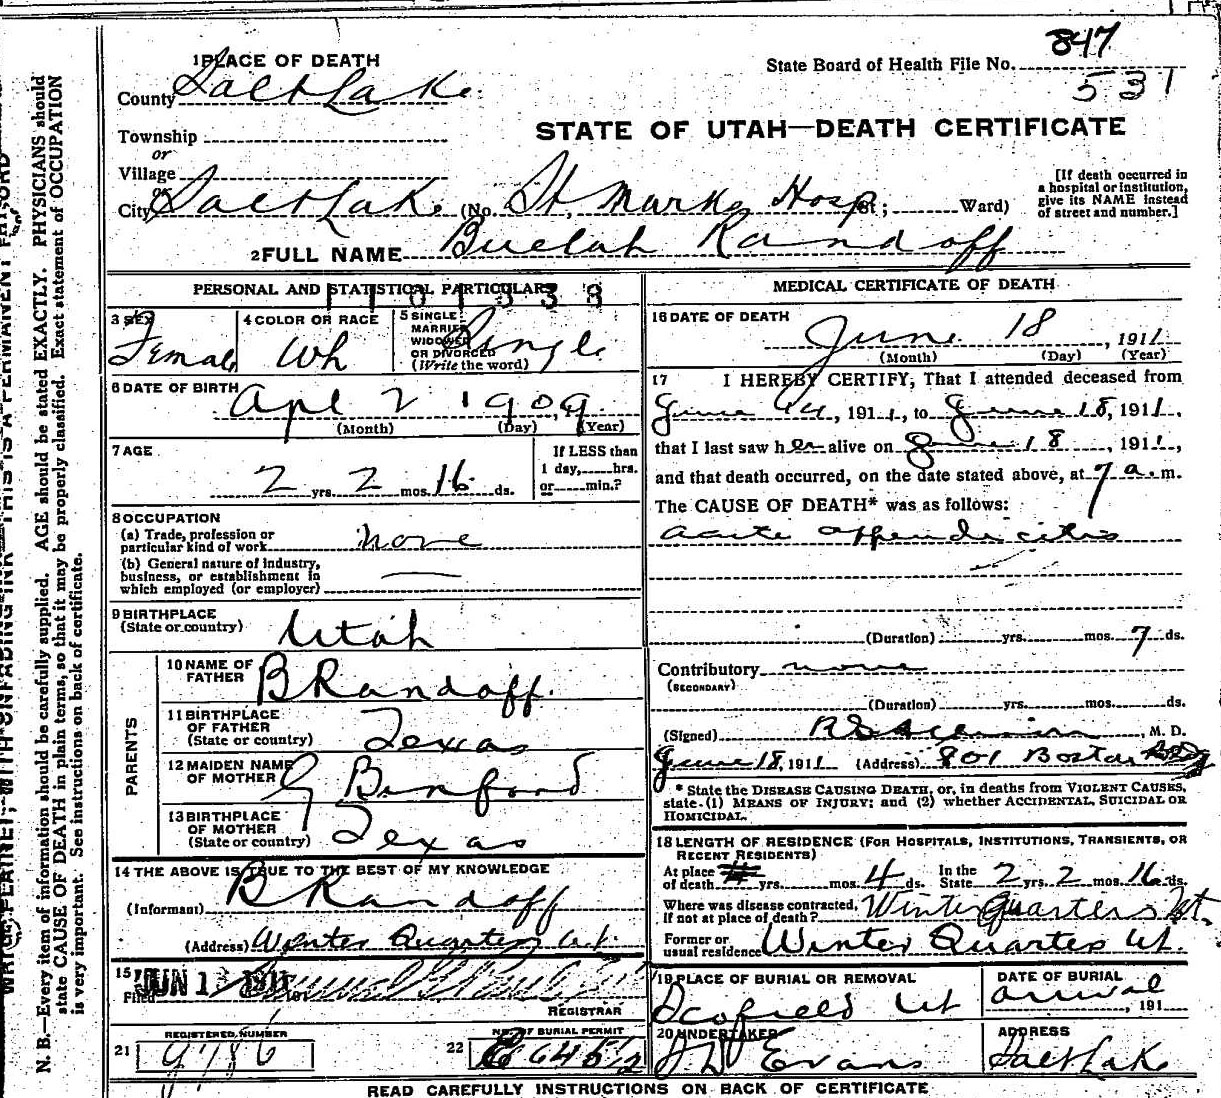 847
State Board of Health File No.
531
1 PLACE OF DEATH
County Salt Lake
STATE OF UTAH—DEATH CERTIFICATE
Township
or
Village
or
City Salt Lake (No. St. Marks Hosp St; Ward)
[If death occurred in
a hospital or institution,
give its NAME instead
of street and number.]
2 FULL NAME Buelah Randoff
PERSONAL AND STATISTICAL PARTICULARS
3 SEX Female
4 COLOR OR RACE Wh
5 SINGLE
MARRIED
WIDOWED
OR DIVORCED
(Write the word) Single
6 DATE OF BIRTH
Apl 2 1909
(Month) (Day) (Year)
7 AGE
2 yrs. 2 mos. 16 ds.
If LESS than
1 day, hrs.
or min.?
8 OCCUPATION
(a) Trade, profession or
particular kind of work none
(b) General nature of industry,
business, or establishment in
which employed (or employer)
9 BIRTHPLACE
(State or country) Utah
PARENTS
10 NAME OF
FATHER B Randoff.
11 BIRTHPLACE
OF FATHER
(State or country) Texas
12 MAIDEN NAME
OF MOTHER G Binford
13 BIRTHPLACE
OF MOTHER
(State or country) Texas
14 THE ABOVE IS TRUE TO THE BEST OF MY KNOWLEDGE
(Informant) B Randoff
(Address) Winter Quarters Ut.
15
Filed JUN 1 1911 191
REGISTRAR
REGISTERED NUMBER
21
NO. OF BURIAL PERMIT
22
MEDICAL CERTIFICATE OF DEATH
16 DATE OF DEATH
June 18, 1911
(Month) (Day) (Year)
17 I HEREBY CERTIFY, That I attended deceased from
June 14, 1911, to June 18, 1911,
that I last saw her alive on June 18, 1911,
and that death occurred, on the date stated above, at 7 a.m.
The CAUSE OF DEATH* was as follows:
acute appendicitis
(Duration) yrs. mos. 7 ds.
Contributory none
(SECONDARY)
(Duration) yrs. mos. ds.
(Signed) M. D.
June 18, 1911 (Address) 801 Boston Bldg
* State the DISEASE CAUSING DEATH, or, in deaths from VIOLENT CAUSES,
state (1) MEANS OF INJURY; and (2) whether ACCIDENTAL, SUICIDAL OR
HOMICIDAL.
18 LENGTH OF RESIDENCE (FOR HOSPITALS, INSTITUTIONS, TRANSIENTS, OR
RECENT RESIDENTS)
At place
of death yrs. mos. 4 ds. In the
State 2 yrs. 2 mos. 16 ds.
Where was disease contracted,
if not at place of death? Winter Quarters Ut.
Former or
usual residence Winter Quarters Ut.
19 PLACE OF BURIAL OR REMOVAL
Scofield Ut
DATE OF BURIAL
arrival, 191
20 UNDERTAKER
Evans
ADDRESS
Salt Lake
READ CAREFULLY INSTRUCTIONS ON BACK OF CERTIFICATE
WRITE PLAINLY, WITH UNFADING INK—THIS IS A PERMANENT RECORD
N. B.—Every item of information should be carefully supplied. AGE should be stated EXACTLY. PHYSICIANS should
state CAUSE OF DEATH in plain terms, so that it may be properly classified. Exact statement of OCCUPATION
is very important. See instructions on back of certificate.